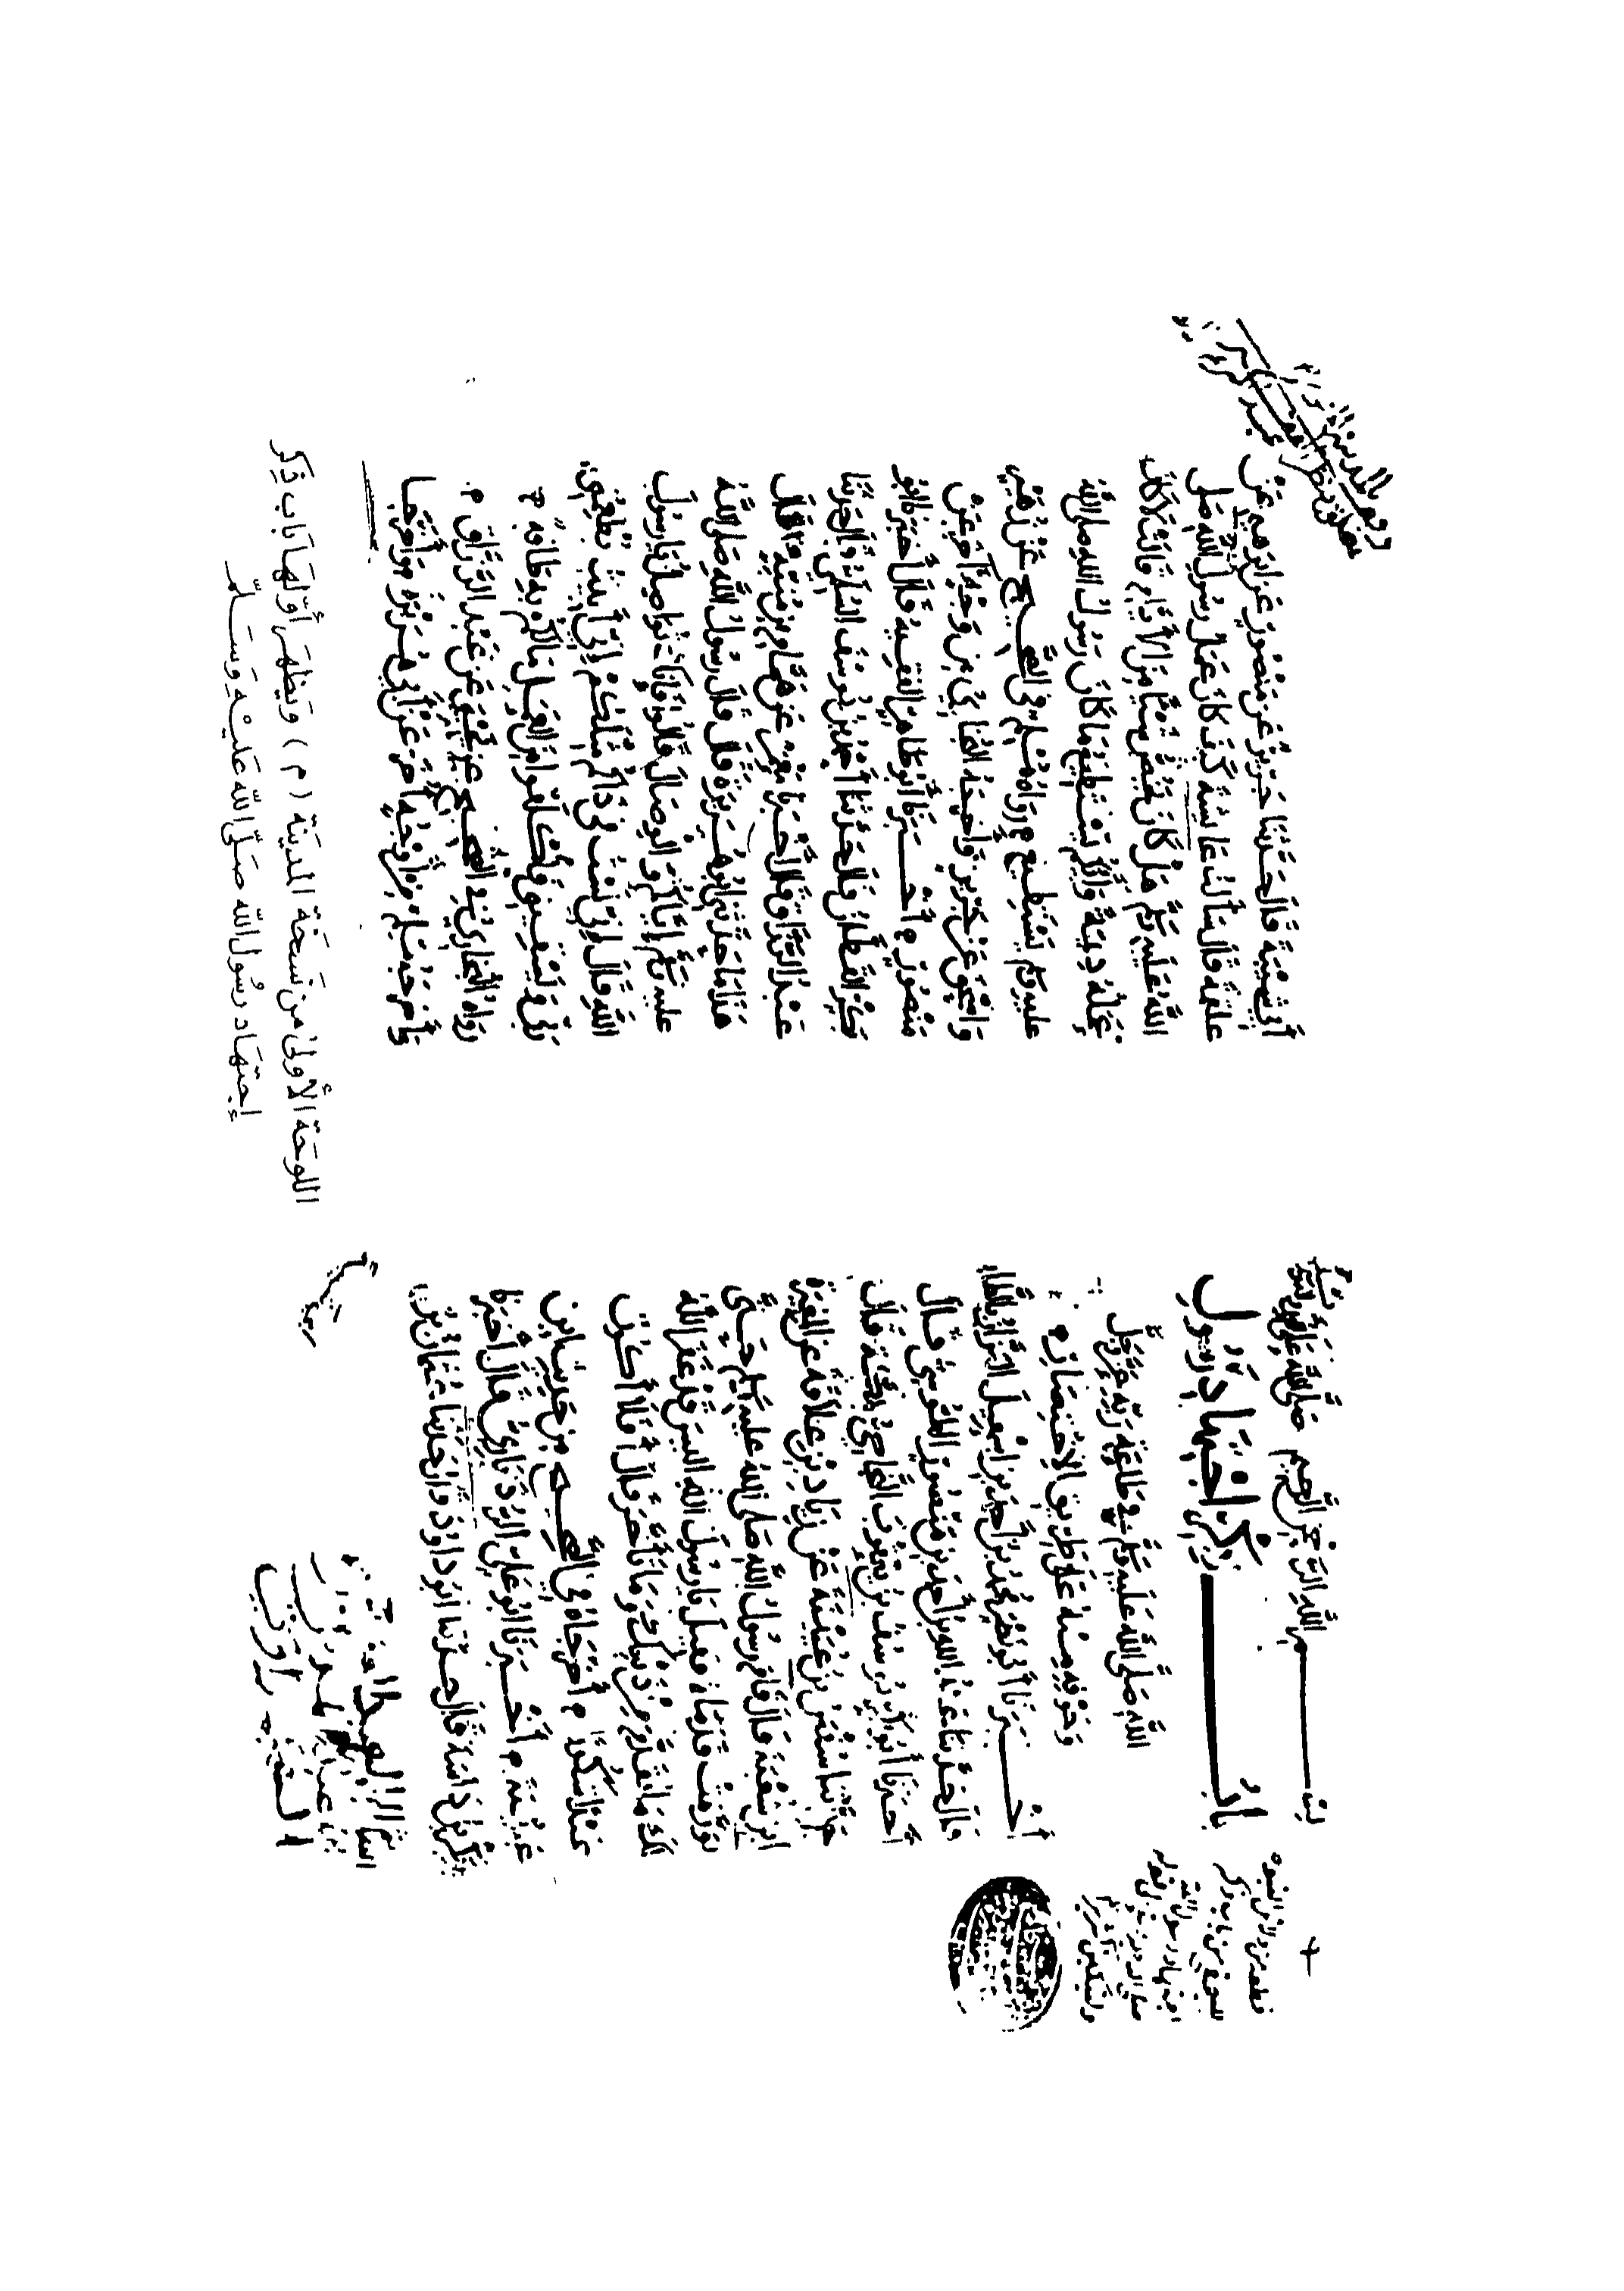 بســـم الله الرحمن الرحيم صلى الله على
بابُ ذِكْرِ اجْتِهَادِ رَسُولِ
اللَّهِ صَلَّى اللَّهُ عَلَيْهِ وَسَلَّمَ فِي طَاعَةِ رَبِّهِ عَزَّ وَجَلَّ
وَخَوْفِهِ مِنْهُ عَلَى طَرِيقِ الِاخْتِصَارِ ه
أَخْـــبَرَنَا أَبُو نَصْرٍ مُحَمَّدُ بْنُ أَحْمَدَ بْنِ إِسْمَعِيلَ الْبَزَّازُ بِالطَّابَرَانِ
قَالَ حَدَّثَنَا عَبْدُ اللَّهِ بْنُ أَحْمَدَ بْنِ مَنْصُورٍ الطُّوسِيُّ قَالَ
أَخْبَرَنَا أَبُو بَكْرٍ يُوسُفُ بْنُ يَعْقُوبَ النَّجَاحِيُّ بِمَكَّةَ قَالَ
حَدَّثَنَا سُفْيَنُ بْنُ عُيَيْنَةَ عَنْ زِيَادِ بْنِ عِلَاقَةَ عَنِ الْمُغِيرَةِ
ابْنِ شُعْبَةَ قَالَ قَامَ رَسُولُ اللَّهِ صَلَّى اللَّهُ عَلَيْهِ وَسَلَّمَ حَتَّى
تَوَرَّمَتْ قَدَمَاهُ فَقِيلَ يَا رَسُولَ اللَّهِ أَلَيْسَ قَدْ غَفَرَ اللَّهُ
لَكَ مَا تَقَدَّمَ مِنْ ذَنْبِكَ وَمَا تَأَخَّرَ قَالَ أَفَلَا أَكُونُ
عَبْدًا شَكُورًا ه أَخْرَجَاهُ فِي الصَّحِيحِ مِنْ حَدِيثِ ابْنِ
عُيَيْنَةَ ه أَخْـــبَرَنَا أَبُو عَلِيٍّ الرُّوذْبَارِيُّ قَالَ أَخْبَرَنَا
بَكْرِ بْنُ دَاسَةَ قَالَ حَدَّثَنَا أَبُو دَاوُدَ قَالَ حَدَّثَنَا عُثْمَانُ بْنُ
أَبِي شَيْبَةَ قَالَ حَدَّثَنَا جَرِيرٌ عَنْ مَنْصُورٍ عَنْ إِبْرَهِيمَ عَنْ
عَلْقَمَةَ قَالَ سَأَلْتُ عَائِشَةَ كَيْفَ كَانَ عَمَلُ رَسُولِ اللَّهِ صَلَّى
اللَّهُ عَلَيْهِ وَسَلَّمَ هَلْ كَانَ يَخُصُّ شَيْئًا مِنَ الْأَيَّامِ قَالَتْ لَا كَانَ
عَمَلُهُ دِيمَةً وَأَيُّكُمْ يَسْتَطِيعُ مَا كَانَ رَسُولُ اللَّهِ صَلَّى اللَّهُ
عَلَيْهِ وَسَلَّمَ يَسْتَطِيعُ ه رَوَاهُ مُسْلِمٌ فِي الصَّحِيحِ عَنْ زُهَيْرٍ
وَإِسْحَقَ عَنْ جَرِيرٍ وَأَخْرَجَهُ الْبُخَارِيُّ مِنْ وَجْهٍ آخَرَ عَنْ
مَنْصُورٍ ه أَخْـــبَرَنَا أَبُو طَاهِرٍ الْفَقِيهُ قَالَ أَخْبَرَنَا أَبُو
بَكْرٍ الْقَطَّانُ قَالَ حَدَّثَنَا أَحْمَدُ بْنُ يُوسُفَ السُّلَمِيُّ قَالَ حَدَّثَنَا
عَبْدُ الرَّزَّاقِ قَالَ أَخْبَرَنَا مَعْمَرٌ عَنْ هَمَّامِ بْنِ مُنَبِّهٍ قَالَ
هَذَا مَا حَدَّثَنَا أَبُو هُرَيْرَةَ قَالَ قَالَ رَسُولُ اللَّهِ صَلَّى اللَّهُ
عَلَيْهِ وَسَلَّمَ إِيَّاكُمْ وَالْوِصَالَ قَالُوا فَإِنَّكَ تُوَاصِلُ يَا رَسُولَ
اللَّهِ قَالَ إِنِّي لَسْتُ فِي ذَاكُمْ مِثْلَكُمْ إِنِّي أَبِيتُ يُطْعِمُنِي
رَبِّي وَيَسْقِينِي فَاكْلَفُوا مِنَ الْعَمَلِ مَا لَكُمْ بِهِ طَاقَةٌ ه
رَوَاهُ الْبُخَارِيُّ فِي الصَّحِيحِ عَنْ يَحْيَى عَنْ عَبْدِ الرَّزَّاقِ ه
وَأَخْرَجَهُ مُسْلِمٌ مِنْ أَوْجُهٍ أُخَرَ عَنْ أَبِي هُرَيْرَةَ وَأَخْرَجَا
اللوحَة الأولىٰ من نسَخَة المدينَة (م) ويَظهَر أوّلهَا بَاب ذِكر
إجتهَاد رسُول الله صَلى الله عَليْه وَسَلم